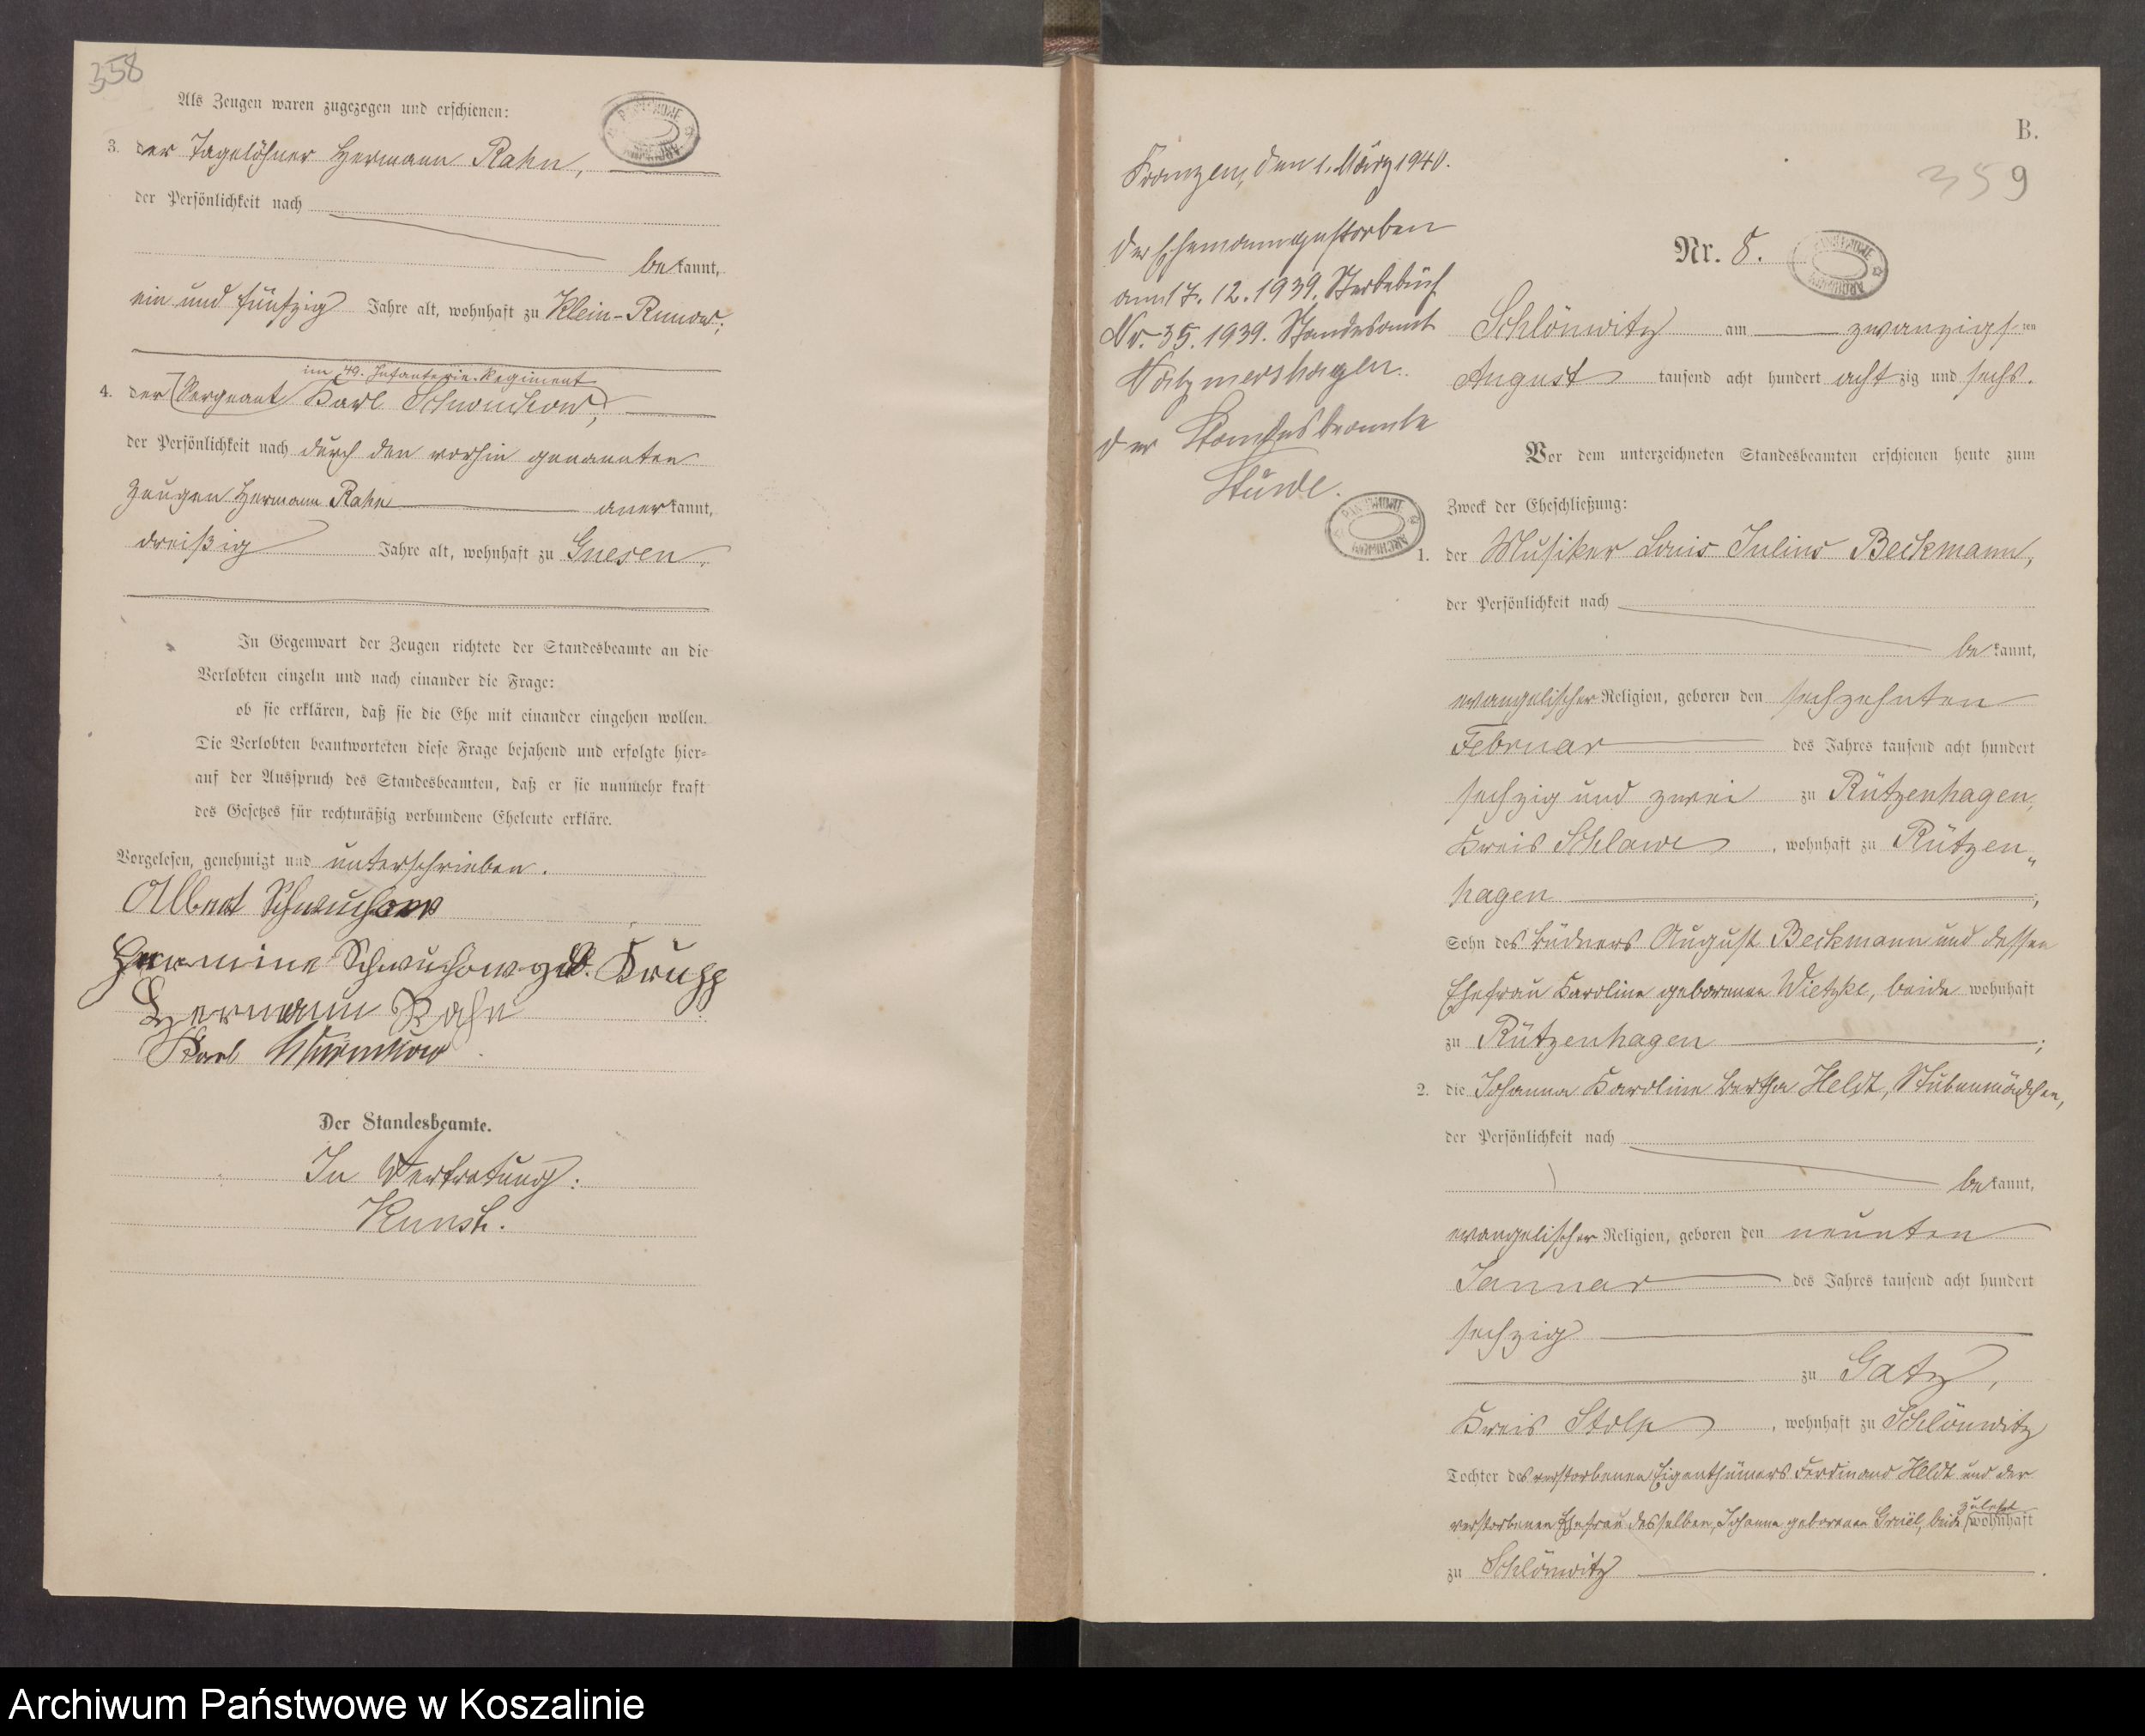 358
Als Zeugen waren zugezogen und erschienen:
3. der Tagelöhner Hermann Rahn,
der Persönlichkeit nach
bekannt,
ein und fünfzig Jahre alt, wohnhaft zu Klein-Runow;
im 49. Infanterie-Regiment
4. der Sergeant Karl Schwuchow,
der Persönlichkeit nach durch den vorhin genannten
Zeugen Hermann Rahn anerkannt,
dreißig Jahre alt, wohnhaft zu Gnesen.
In Gegenwart der Zeugen richtete der Standesbeamte an die
Verlobten einzeln und nach einander die Frage:
ob sie erklären, daß sie die Ehe mit einander eingehen wollen.
Die Verlobten beantworteten diese Frage bejahend und erfolgte hier-
auf der Ausspruch des Standesbeamten, daß er sie nunmehr kraft
des Gesetzes für rechtmäßig verbundene Eheleute erkläre.
Vorgelesen, genehmigt und unterschrieben.
Albert Schwuchow
Hermine Schwuchow geb. Krupp
Hermann Rahn
Karl Schwuchow
Der Standesbeamte.
In Vertretung:
B.
359
Franzen, den 1. März 1940.
Der Ehemann gestorben
am 17. 12. 1939. Sterbebuch
Nr. 35. 1939. Standesamt
Notzmershagen.
Der Standesbeamte
Nr. 8.
Schlönwitz am zwanzigsten
August tausend acht hundert achtzig und sechs.
Vor dem unterzeichneten Standesbeamten erschienen heute zum
Zweck der Eheschließung:
1. der Musiker Louis Julius Beckmann,
der Persönlichkeit nach
bekannt,
evangelischer Religion, geboren den sechzehnten
Februar des Jahres tausend acht hundert
sechzig und zwei zu Rützenhagen,
Kreis Schlawe, wohnhaft zu Rützen„
hagen;
Sohn des Büdners August Beckmann und dessen
Ehefrau Karoline geborenen Wietzke, beide wohnhaft
zu Rützenhagen;
2. die Johanna Karoline Bertha Heldt, Stubenmädchen,
der Persönlichkeit nach
bekannt,
evangelischer Religion, geboren den neunten
Januar des Jahres tausend acht hundert
sechzig
zu Gatz,
Kreis Stolp, wohnhaft zu Schlönwitz
Tochter des verstorbenen Eigenthümers Ferdinand Heldt und der
zuletzt
verstorbenen Ehefrau desselben, Johanna geborenen Gruël, beide wohnhaft
zu Schlönwitz.
Archiwum Państwowe w Koszalinie